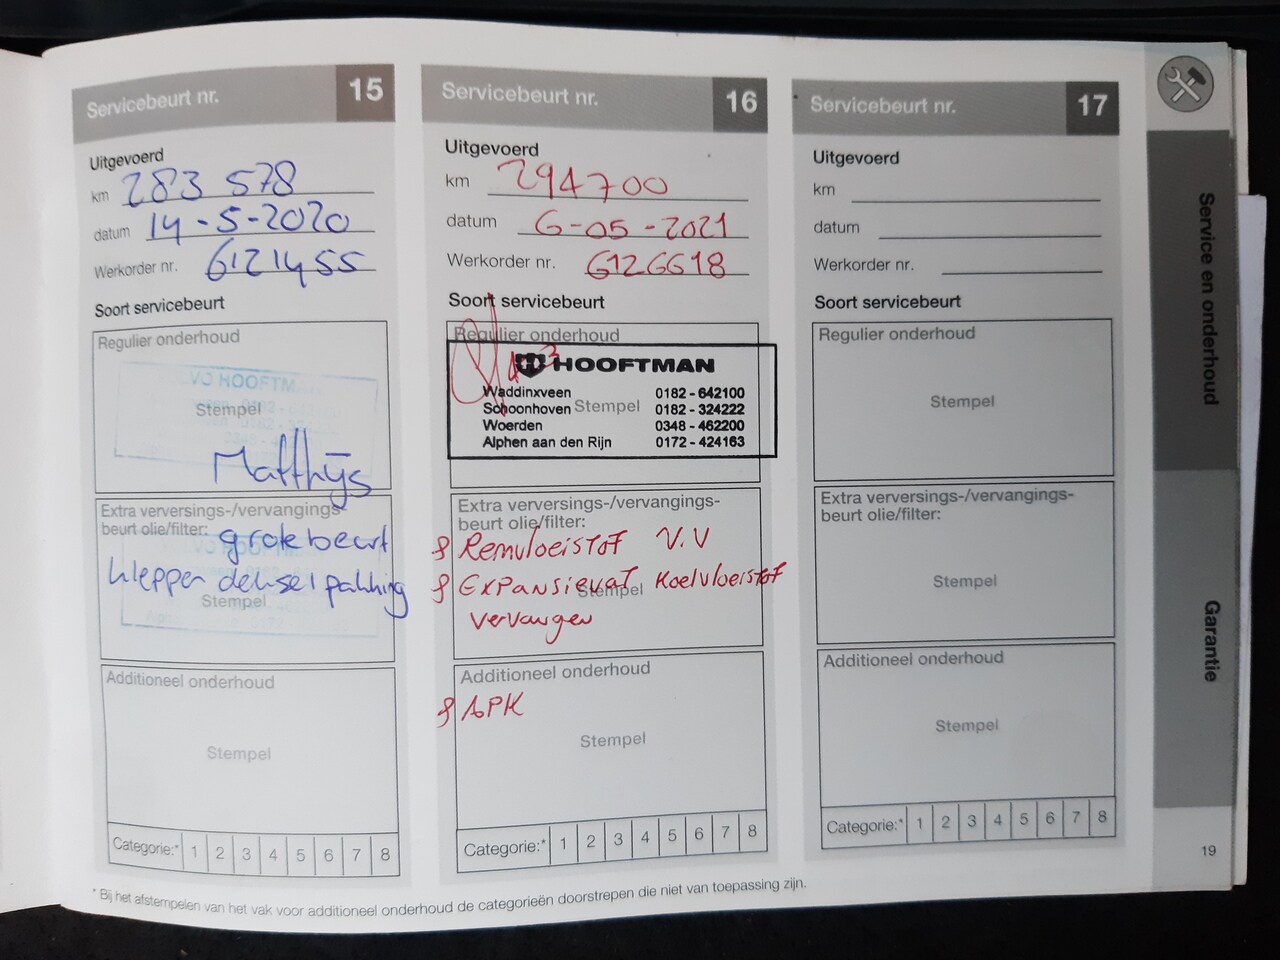 Servicebeurt nr. 15
Uitgevoerd
km 283 578
datum 14-5-2020
Werkorder nr. 6121455
Soort servicebeurt
Regulier onderhoud
VO HOOFTM
Stempel
Matthijs
Extra verversings-/vervangings-
beurt olie/filter: grote beurt
kleppen deksel pakking
Stempel
Additioneel onderhoud
Stempel
Categorie:* 1 2 3 4 5 6 7 8
Servicebeurt nr. 16
Uitgevoerd
km 294700
datum 6-05-2021
Werkorder nr. 6126618
Soort servicebeurt
Regulier onderhoud
HOOFTMAN
Waddinxveen 0182 - 642100
Schoonhoven Stempel 0182 - 324222
Woerden 0348 - 462200
Alphen aan den Rijn 0172 - 424163
Extra verversings-/vervangings-
beurt olie/filter:
Remvloeistof V.V
Expansievat Koelvloeistof
Stempel
vervangen
Additioneel onderhoud
APK
Stempel
Categorie:* 1 2 3 4 5 6 7 8
Servicebeurt nr. 17
Uitgevoerd
km
datum
Werkorder nr.
Soort servicebeurt
Regulier onderhoud
Stempel
Extra verversings-/vervangings-
beurt olie/filter:
Stempel
Additioneel onderhoud
Stempel
Categorie:* 1 2 3 4 5 6 7 8
* Bij het afstempelen van het vak voor additioneel onderhoud de categorieën doorstrepen die niet van toepassing zijn.
Service en onderhoud
Garantie
19